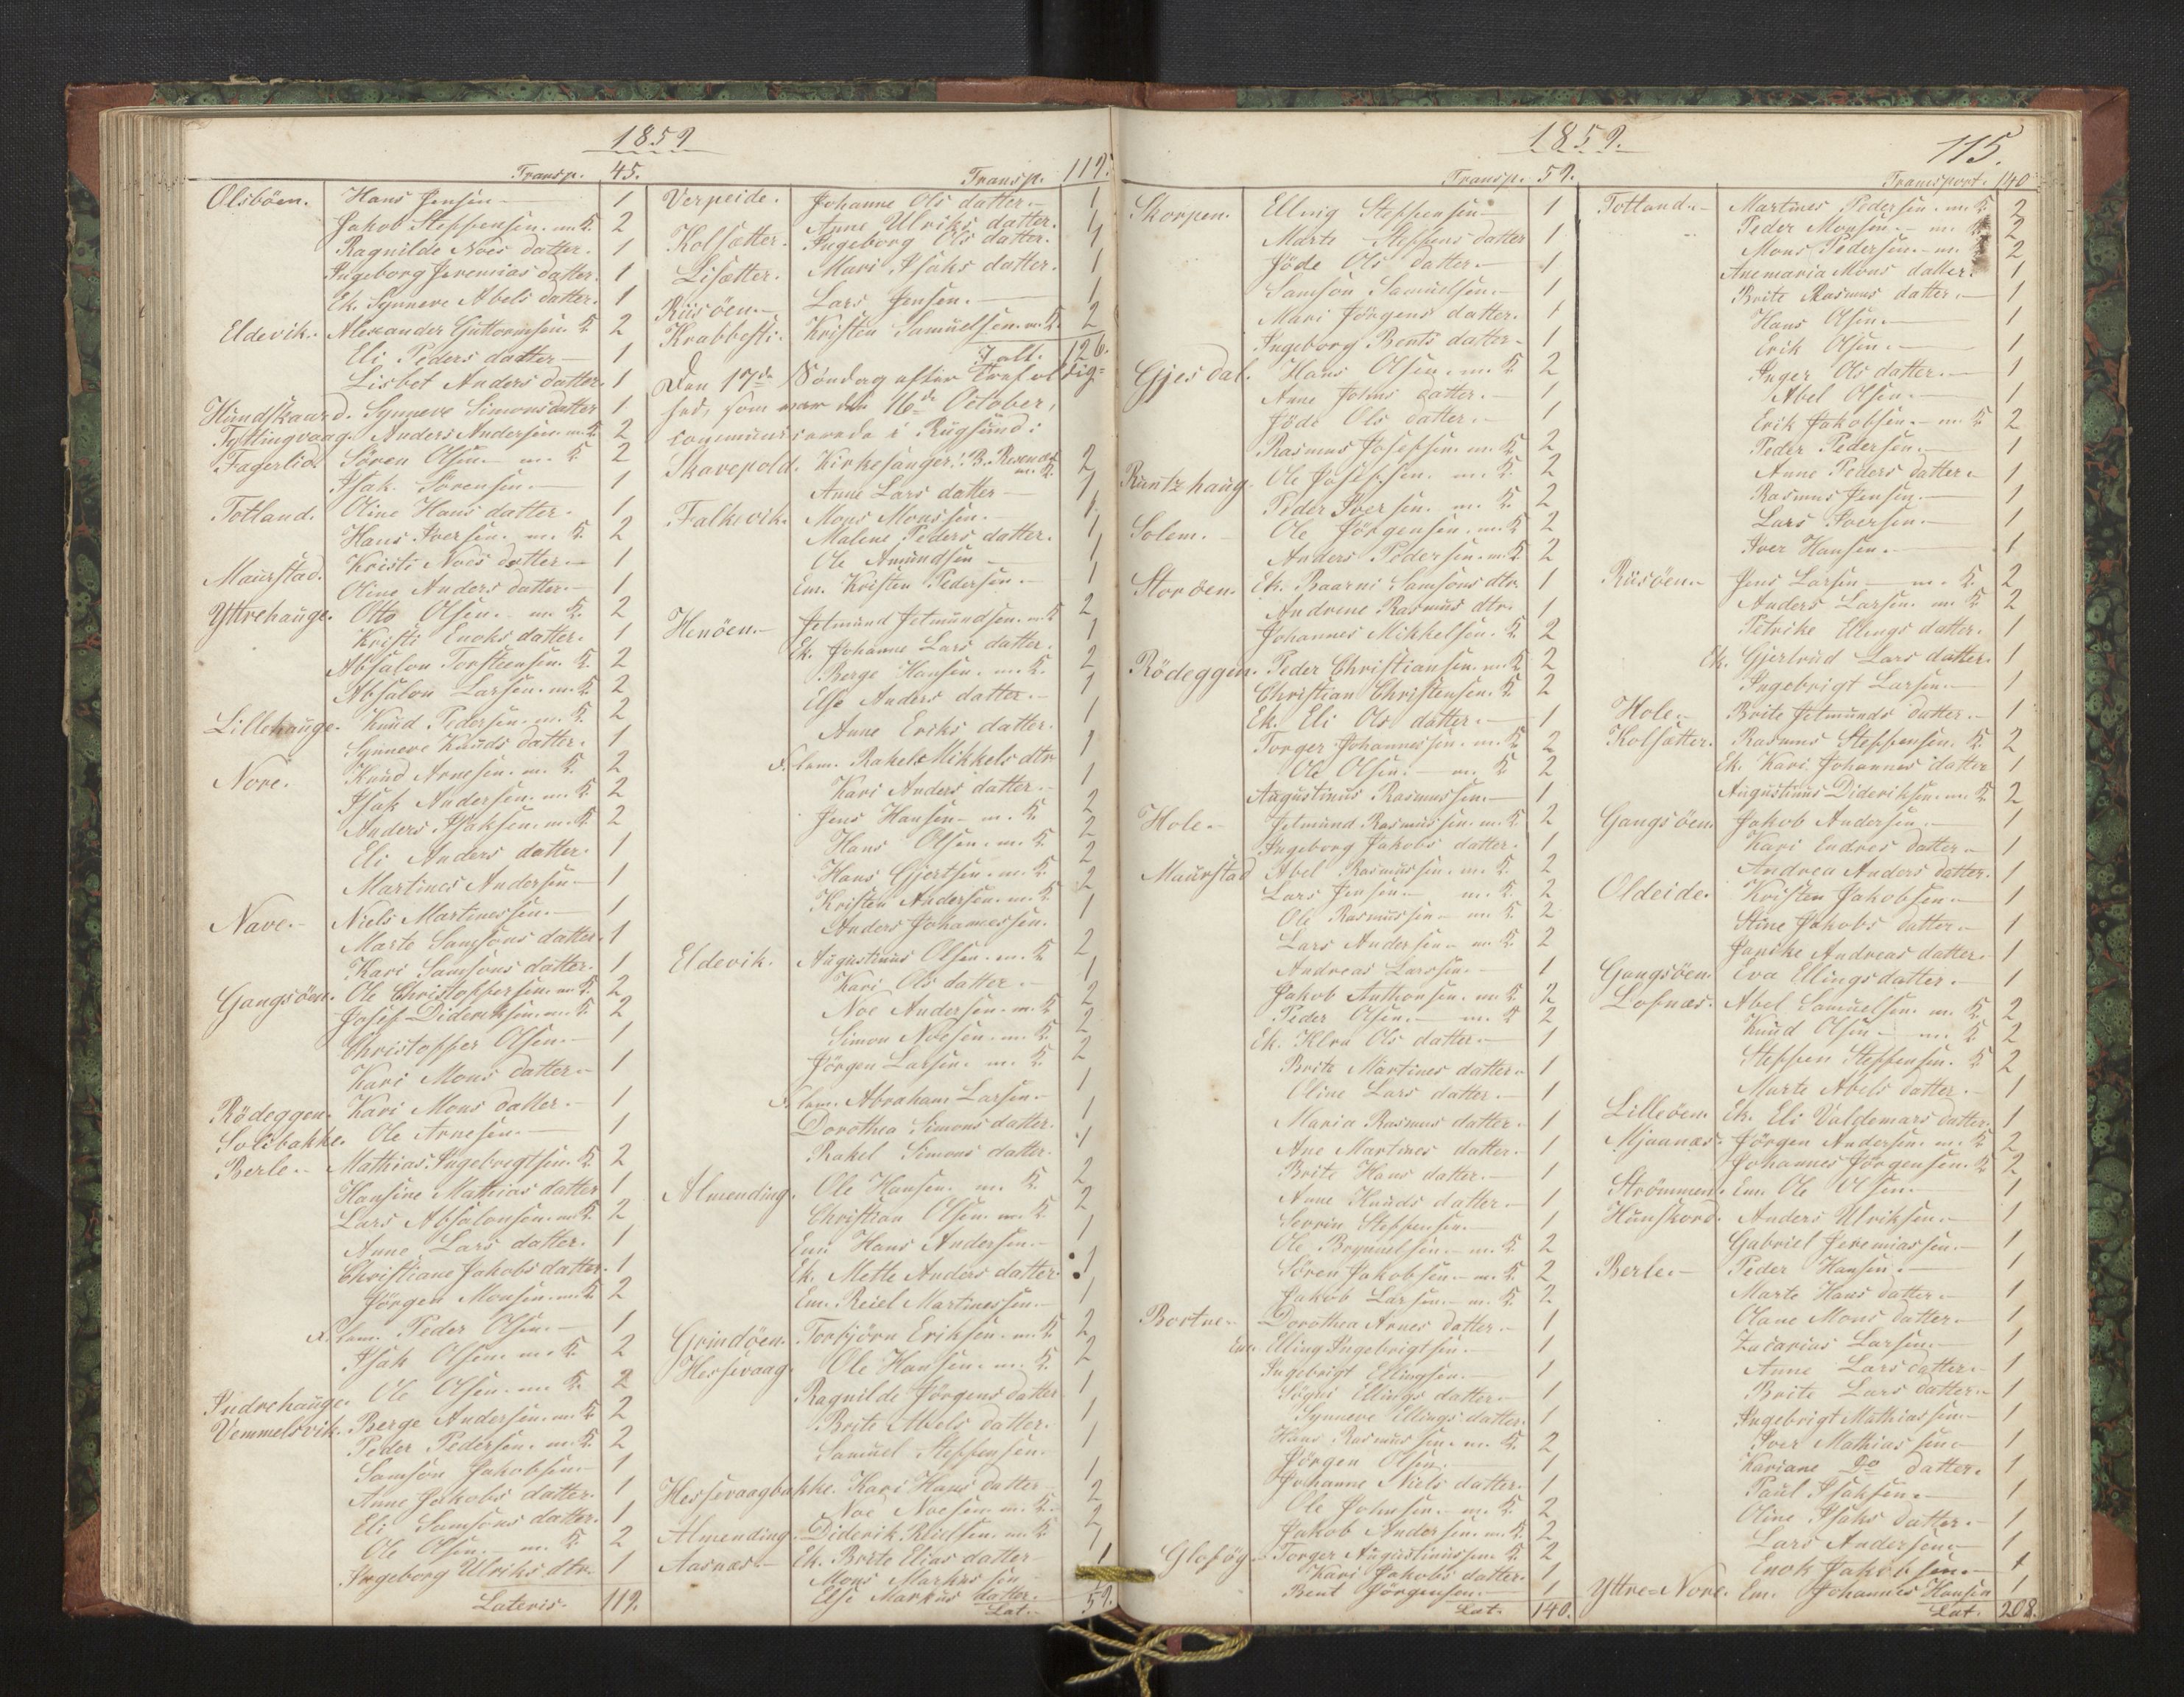 1859
Transp. 45.
Olsböen. Hans Jensen 1
Jakob Steffensen. m. K. 2
Ragnilde Noes datter. 1
Ingeborg Jeremias datter. 1
Ek. Synneve Abels datter. 1
Eldevik. Alexander Guttormsen. K. 2
Eli Peders datter 1
Lisbet Anders datter. 1
Hundskaard. Synneve Simons datter 1
Tytlingvaag. Anders Andersen. m. K. 2
Fagerlid. Sören Olsen. m. K. 2
Isak Sörensen. 1
Totland. Oline Hans datter. 1
Hans Iversen. m. K. 2
Maurstad. Kristi Noes datter. 1
Oline Anders datter. 1
Yttrehauge. Otto Olsen. m. K. 2
Kristi Enoks datter. 1
Absalon Torsteensen. K. 2
Absalon Larsen. m. K. 2
Lillehauge. Knud Pedersen. m. K. 2
Synneve Knuds datter. 1
Nore. Knud Arnesen. m. K. 2
Isak Andersen. m. K. 2
Anders Isaksen. m. K. 2
Eli Anders datter. 1
Martines Andersen 1
Nave. Niels Martinessen. 1
Marte Samsons datter. 1
Kari Samsons datter. 1
Gangsöen. Ole Christoffersen. m. K. 2
Josef Dideriksen. m. K. 2
Christoffer Olsen. 1
Kari Mons datter. 1
Rödeggen. Kari Mons datter. 1
Solibakke. Ole Arnesen. 1
Berle. Mathias Ingebrigtsen. K. 2
Hansine Mathias datter 1
Lars Absalonsen. m. K. 2
Anne Lars datter. 1
Christiane Jakobs datter. 1
Jörgen Monsen. m. K. 2
F. lem. Peder Olsen. 1
Isak Olsen. m. K. 2
Ole Olsen. m. K. 2
Indrehauge.
Vemmelsvik. Berge Andersen. m. K. 2
Peder Pedersen. m. K. 2
Samson Jakobsen 1
Anne Jakobs datter. 1
Eli Samsons datter. 1
Ole Olsen. m. K. 2
Ingeborg Ulriks dtr. 1
Lateris. 119.
Transp. 119.
Verpeide. Johanne Ols datter. 1
Anne Ulriks datter. 1
Kolsætter. Ingeborg Ols datter. 1
Lisætter. Mari Isaks datter. 1
Riisöen. Lars Jensen. 1
Krabbesti. Kristen Samuelsen. m. K. 2
I alt. 126.
Den 17de Söndag efter Trefoldig-
hed, som var den 16de October,
communicerede i Rügsund:
Skavepold. Kirkesanger B. m. K. 2
Anne Lars datter 1
Falkevik. Mons Monssen. 1
Malene Peders datter. 1
Ole Amundsen 1
Em. Kristen Pedersen. 1
Henöen. Jetmund Jetmundsen. m. K. 2
Ek. Johanne Lars datter. 1
Berge Hansen. m. K. 2
Else Anders datter. 1
Anne Eriks datter. 1
F. lem. Rakel Mikkels dtr 1
Kari Anders datter. 1
Jens Hansen m. K. 2
Hans Olsen. m. K. 2
Hans Gjertsen. m. K. 2
Kristen Andersen. m. K. 2
Anders Johannessen. 1
Eldevik. Augustinus Olsen. m. K. 2
Kari Ols datter. 1
Noe Andersen. m. K. 2
Simon Noesen. m. K. 2
Jörgen Larsen. m. K. 2
F. lem. Abraham Larsen. 1
Dorothea Simons datter. 1
Rakel Simons datter. 1
Almending. Ole Hansen. m. K. 2
Christian Olsen. m. K. 2
Em. Hans Andersen. 1
Ek. Mette Anders datter. 1
Em. Reiel Martinessen. 1
Grindöen. Torbjörn Eriksen. m. K. 2
Hessevaag. Ole Hansen. m. K. 2
Ragnilde Jörgens datter 1
Brite Abels datter. 1
Samuel Steffensen. 1
Hessevaagbakke. Kari Hans datter 1
Noe Noesen m. K. 2
Almending. Diderik m. K. 2
Aasnæs. Ek. Brite Elias datter 1
Mons Markussen 1
Else Markus datter.
Lat. 59.
1859.
115.
Transp. 59.
Skorpen. Elling Steffensen 1
Marte Steffens datter 1
Jöde Ols datter. 1
Samson Samuelsen. 1
Mari Jörgens datter. 1
Ingeborg Bents datter. 1
Gjesdal. Hans Olsen. m. K. 2
Anne Johns datter. 1
Jöde Ols datter. 1
Rasmus Josefsen m. K. 2
Runtzhaug. Ole Josefsen. m. K. 2
Peder Iversen. m. K. 2
Solem. Ole Jörgensen. m. K. 2
Anders Pedersen. m. K. 2
Storöen. Ek. Baarni Samsons dtr. 1
Andrine Rasmus dtr. 1
Johannes Mikkelsen. K. 2
Rödeggen. Peder Christiansen. m. K. 2
Christian Christensen. K. 2
Ek. Eli Ols datter. 1
Torger Johannessen. m. K. 2
Ole Olsen. m. K. 2
Augustinus Rasmussen. 1
Hole. Jetmund Rasmussen. m. K. 2
Ingeborg Jakobs datter. 1
Maurstad Abel Rasmussen. m. K. 2
Lars Jensen. m. K. 2
Ole Rasmussen. m. K. 2
Lars Andersen. m. K. 2
Andreas Larssen. 1
Jakob Anthonsen. m. K. 2
Peder Olsen. m. K. 2
Ek. Ols datter. 1
Brite Martines datter. 1
Oline Lars datter. 1
Maria Rasmus datter. 1
Ane Martines datter. 1
Brite Hans datter. 1
Anne Knuds datter. 1
Serrin Steffensen. 1
Ole Brynnelsen. m. K. 2
Sören Jakobsen. m. K. 2
Jakob Larsen. m. K. 2
Bortne. Dorothea Arnes datter. 1
Em. Elling Ingebrigtsen. 1
Ingebrigt Ellingsen. 1
Ellings datter. 1
Synneve Ellings datter. 1
Hans Rasmussen. m. K. 2
Jörgen Olsen. 1
Johanne Niels datter. 1
Ole Johnsen. m. K. 2
Jakob Andersen. m. K. 2
Glosög. Torger Augustinussen. K. 2
Kari Jakobs datter. 1
Bent Jörgensen. 1
Lat. 140.
Transport. 140
Totland. Martines Pedersen. m. K. 2
Peder Monsen. m. K. 2
Mons Pedersen. m. K. 2
Anemaria Mons datter. 1
Brite Rasmus datter. 1
Hans Olsen. 1
Erik Olsen. 1
Inger Ols datter. 1
Abel Olsen. 1
Erik Jakobsen. m. K. 2
Peder Pedersen. 1
Anne Peders datter. 1
Rasmus Jensen. 1
Lars Iversen. 1
Iver Hansen. 1
Riisöen. Jens Larsen m. K. 2
Anders Larsen. m. K. 2
Petrike Ellings datter. 1
Ek. Gjertrud Lars datter. 1
Ingebrigt Larsen. 1
Hole. Brite Jetmunds datter. 1
Kolsætter. Rasmus Steffensen. K. 2
Ek. Kari Johannes datter 1
Augustinus Dideriksen. m. K. 2
Gangsöen. Jakob Andersen. 1
Kari Endres datter. 1
Andrea Anders datter. 1
Oldeide. Kristen Jakobsen. 1
Stine Jakobs datter. 1
Janike Andreas datter. 1
Gangsöen. Eva Ellings datter. 1
Lofnæs. Abel Samuelsen. m. K. 2
Knud Olsen m. K. 2
Steffen Steffensen. K. 2
Marte Abels datter. 1
Lilleöen. Ek. Eli Valdemars datter. 1
Mjaanæs. Jörgen Andersen. m. K. 2
Johannes Jörgensen. K. 2
Strömmen. Em. Ole Olsen. 1
Hunskord. Anders Ulriksen. 1
Gabriel Jeremiassen. 1
Berle. Peder Hansen. 1
Marte Hans datter. 1
Olane Mons datter. 1
Zacarias Larsen. 1
Anne Lars datter. 1
Brite Lars datter. 1
Ingebrigt Mathiassen. 1
Iver Mathiassen. 1
Kariane Do datter. 1
Paul Isaksen. 1
Oline Isaks datter. 1
Lars Andersen. 1
Enok Jakobsen. 1
Yttre-Nore. Em. Johannes Hansen 1
Lat. 208.